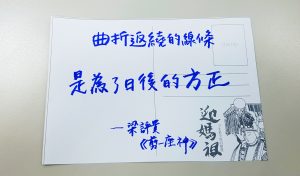 曲折返繞的線條
是為了日後的方正
—梁評貴
《剪一座神》
迎媽祖